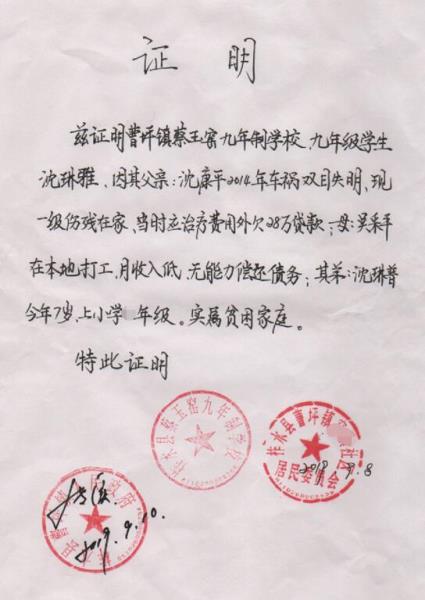 证明
兹证明曹坪镇蔡玉窑九年制学校、九年级学生
沈琳雅、因其父亲:沈康平2014年车祸双目失明,现
一级伤残在家,当时应治疗费用外欠28万贷款;母:吴采平
在本地打工,月收入低,无能力偿还债务;其弟:沈琳普
今年7岁,上小学一年级。实属贫困家庭。
特此证明
柞水县蔡玉窑九年制学校
柞水县曹坪镇 社区
居民委员会
9.8
9.10.